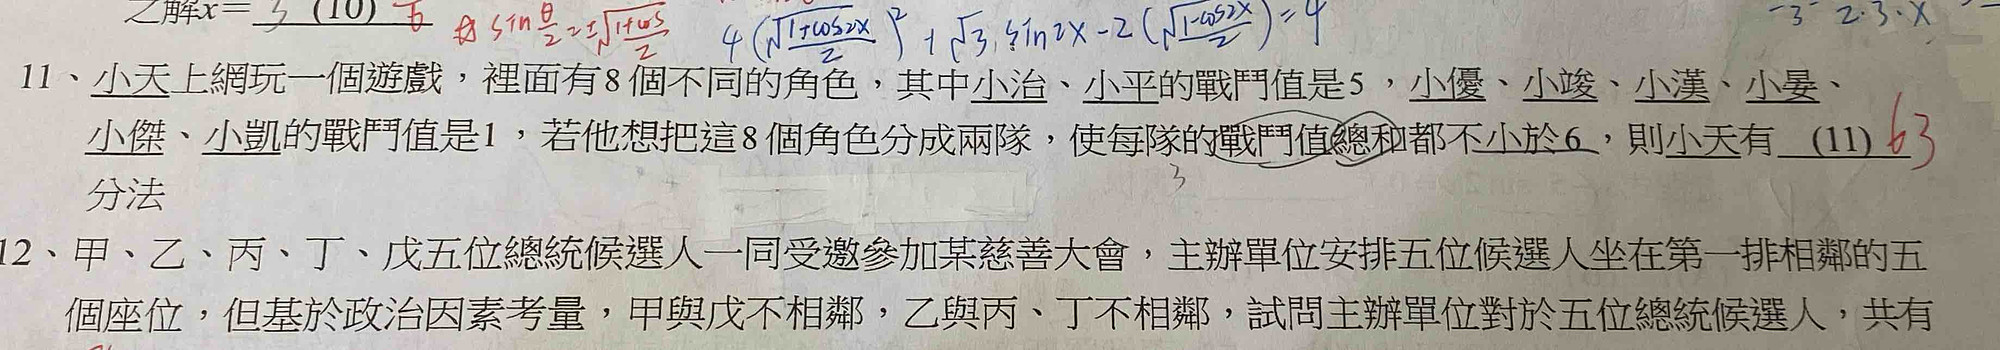 之解x=3 (10) 6
sin θ/2 = ±√(1+cos/2) 4(√(1+cos2x/2))² + √3, sin2x - 2(√(1-cos2x/2)) = 4 -3 2·3·X
11、小天上網玩一個遊戲，裡面有8個不同的角色，其中小治、小平的戰鬥值是5，小優、小竣、小漢、小晏、
小傑、小凱的戰鬥值是1，若他想把這8個角色分成兩隊，使每隊的戰鬥值總和都不小於6，則小天有 (11) 63
3
分法
12、甲、乙、丙、丁、戊五位總統候選人一同受邀參加某慈善大會，主辦單位安排五位候選人坐在第一排相鄰的五
個座位，但基於政治因素考量，甲與戊不相鄰，乙與丙、丁不相鄰，試問主辦單位對於五位總統候選人，共有